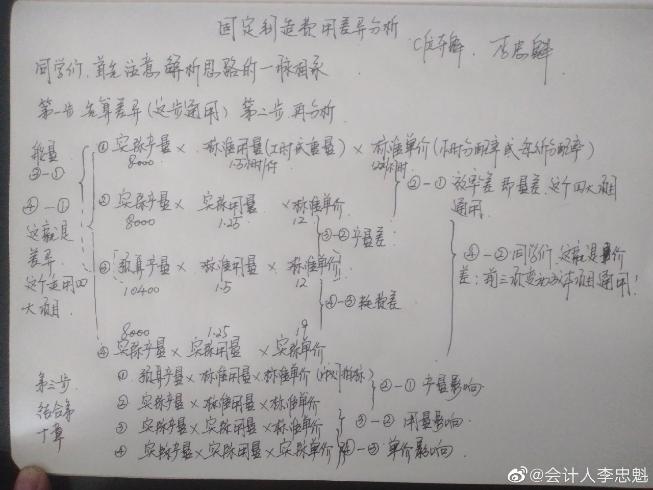 固定制造费用差异分析
李忠魁
同学们,首先注意解析思路的一脉相承
第一步 先算差异(这步通用) 第二步 再分析
能量
③-①
④-①
这就是
差异
这个通用四
大项目.
① 实际产量 × 标准用量(工时或重量) × 标准单价(小时分配率或每千克分配率)
8000 1.5小时/件 12/小时
②-① 效率差 即量差,这个四大项目
通用
② 实际产量 × 实际用量 × 标准单价
8000 1.25 12
③-② 产量差:
③ 预算产量 × 标准用量 × 标准单价
10400 1.5 12
④-③ 耗费差
④-② 同学们,这就是价
差:前三项变动成本项目通用!
8000 1.25 19
④ 实际产量 × 实际用量 × 实际单价
第三步
结合第
十章
① 预算产量 × 标准用量 × 标准单价
②-① 产量影响
② 实际产量 × 标准用量 × 标准单价
③ 实际产量 × 实际用量 × 标准单价
③-② 用量影响
④ 实际产量 × 实际用量 × 实际单价
④-③ 单价影响
@会计人李忠魁